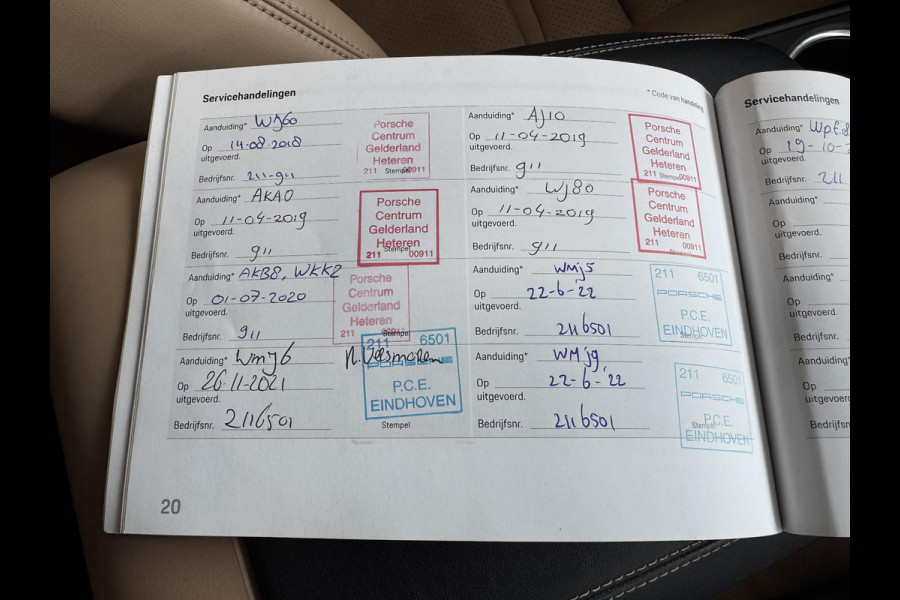 Servicehandelingen
* Code van handeling
Aanduiding* WJ60
Op 14-08-2018
uitgevoerd.
Bedrijfsnr. 211-911
Porsche
Centrum
Gelderland
Heteren
211 Stempel 00911
Aanduiding* AKA0
Op 11-04-2019
uitgevoerd.
Bedrijfsnr. 911
Porsche
Centrum
Gelderland
Heteren
Stempel
211 00911
Aanduiding* AKB8, WKK2
Op 01-07-2020
uitgevoerd.
Bedrijfsnr. 911
Porsche
Centrum
Gelderland
Heteren
211 00911
Stempel
Aanduiding* WMJ6
Op 26-11-2021
uitgevoerd.
Bedrijfsnr. 2116501
211 6501
PORSCHE
P.C.E.
EINDHOVEN
Stempel
Aanduiding* AJ10
Op 11-04-2019
uitgevoerd.
Bedrijfsnr. 911
Porsche
Centrum
Gelderland
Heteren
211 Stempel 00911
Aanduiding* WJ80
Op 11-04-2019
uitgevoerd.
Bedrijfsnr. 911
Porsche
Centrum
Gelderland
Heteren
211 00911
Aanduiding* WMJ5
Op 22-6-'22
uitgevoerd.
Bedrijfsnr. 2116501
211 6501
PORSCHE
P.C.E.
EINDHOVEN
Stempel
Aanduiding* WMJ9
Op 22-6-'22
uitgevoerd.
Bedrijfsnr. 2116501
211 6501
PORSCHE
P.C.E.
Stempel
EINDHOVEN
20
Servicehandelingen
Aanduiding*
Op 19-10-2
uitgevoerd.
Bedrijfsnr. 211
Aanduiding*
Op
uitgevoerd.
Bedrijfsnr.
Aanduiding*
Op
uitgevoerd.
Bedrijfsnr.
Aanduiding*
Op
uitgevoerd.
Bedrijfsn